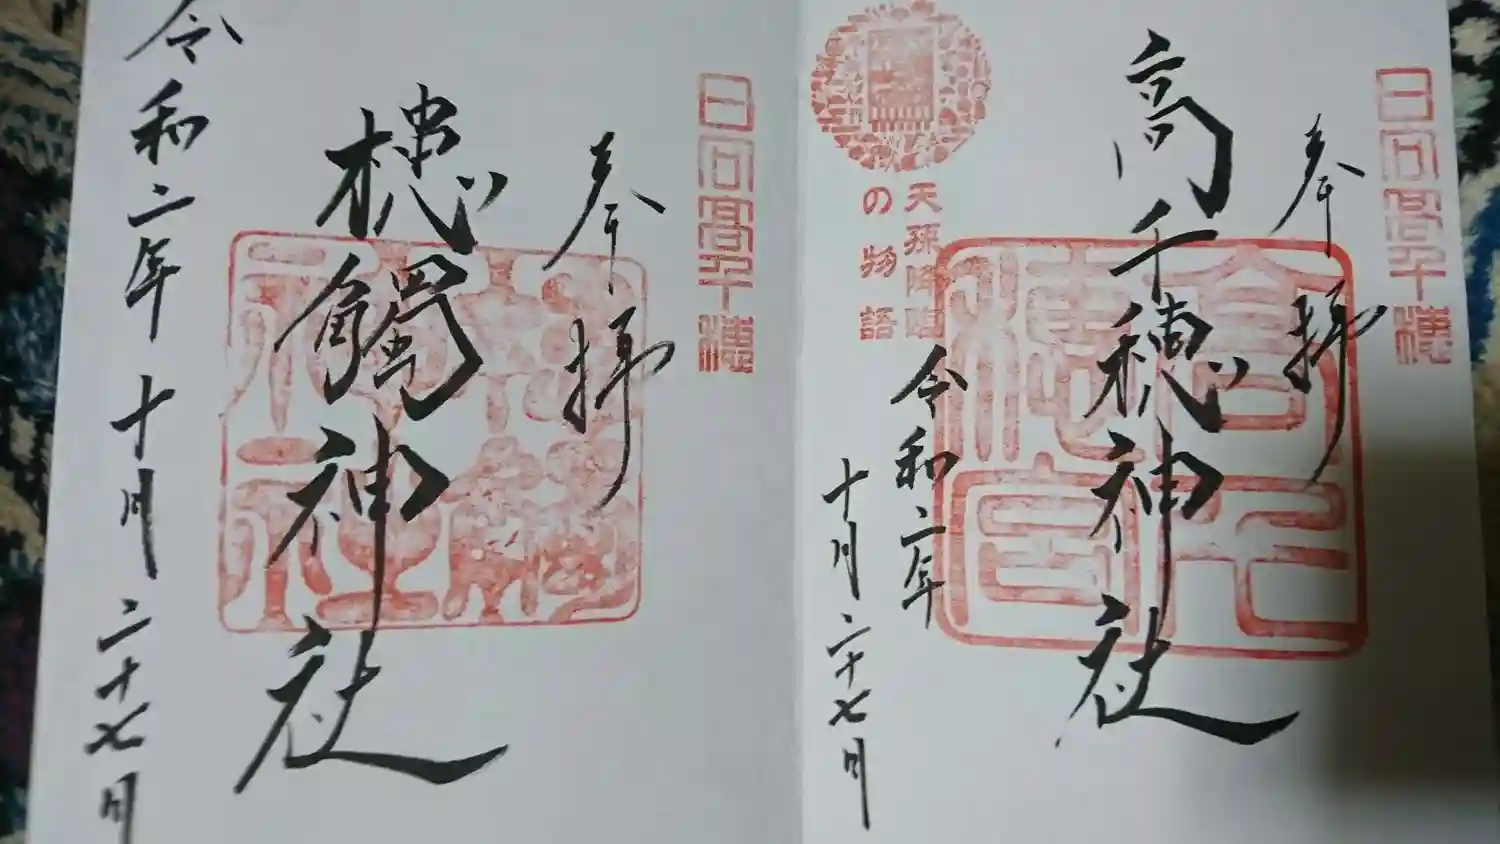 日向高千穂
奉拝
高千穂神社
高千穂宮
天孫降臨
の物語
令和二年
十月二十七日
日向高千穂
奉拝
槵觸神社
令和二年十月二十七日